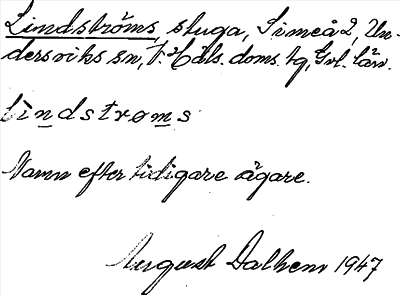 Lindströms, stuga, Simeå 2, Un-
dersviks sn, V. Häls. doms. hg, Gvl. län.
lindstrøms
Namn efter tidigare ägare.
August Dalhem 1947